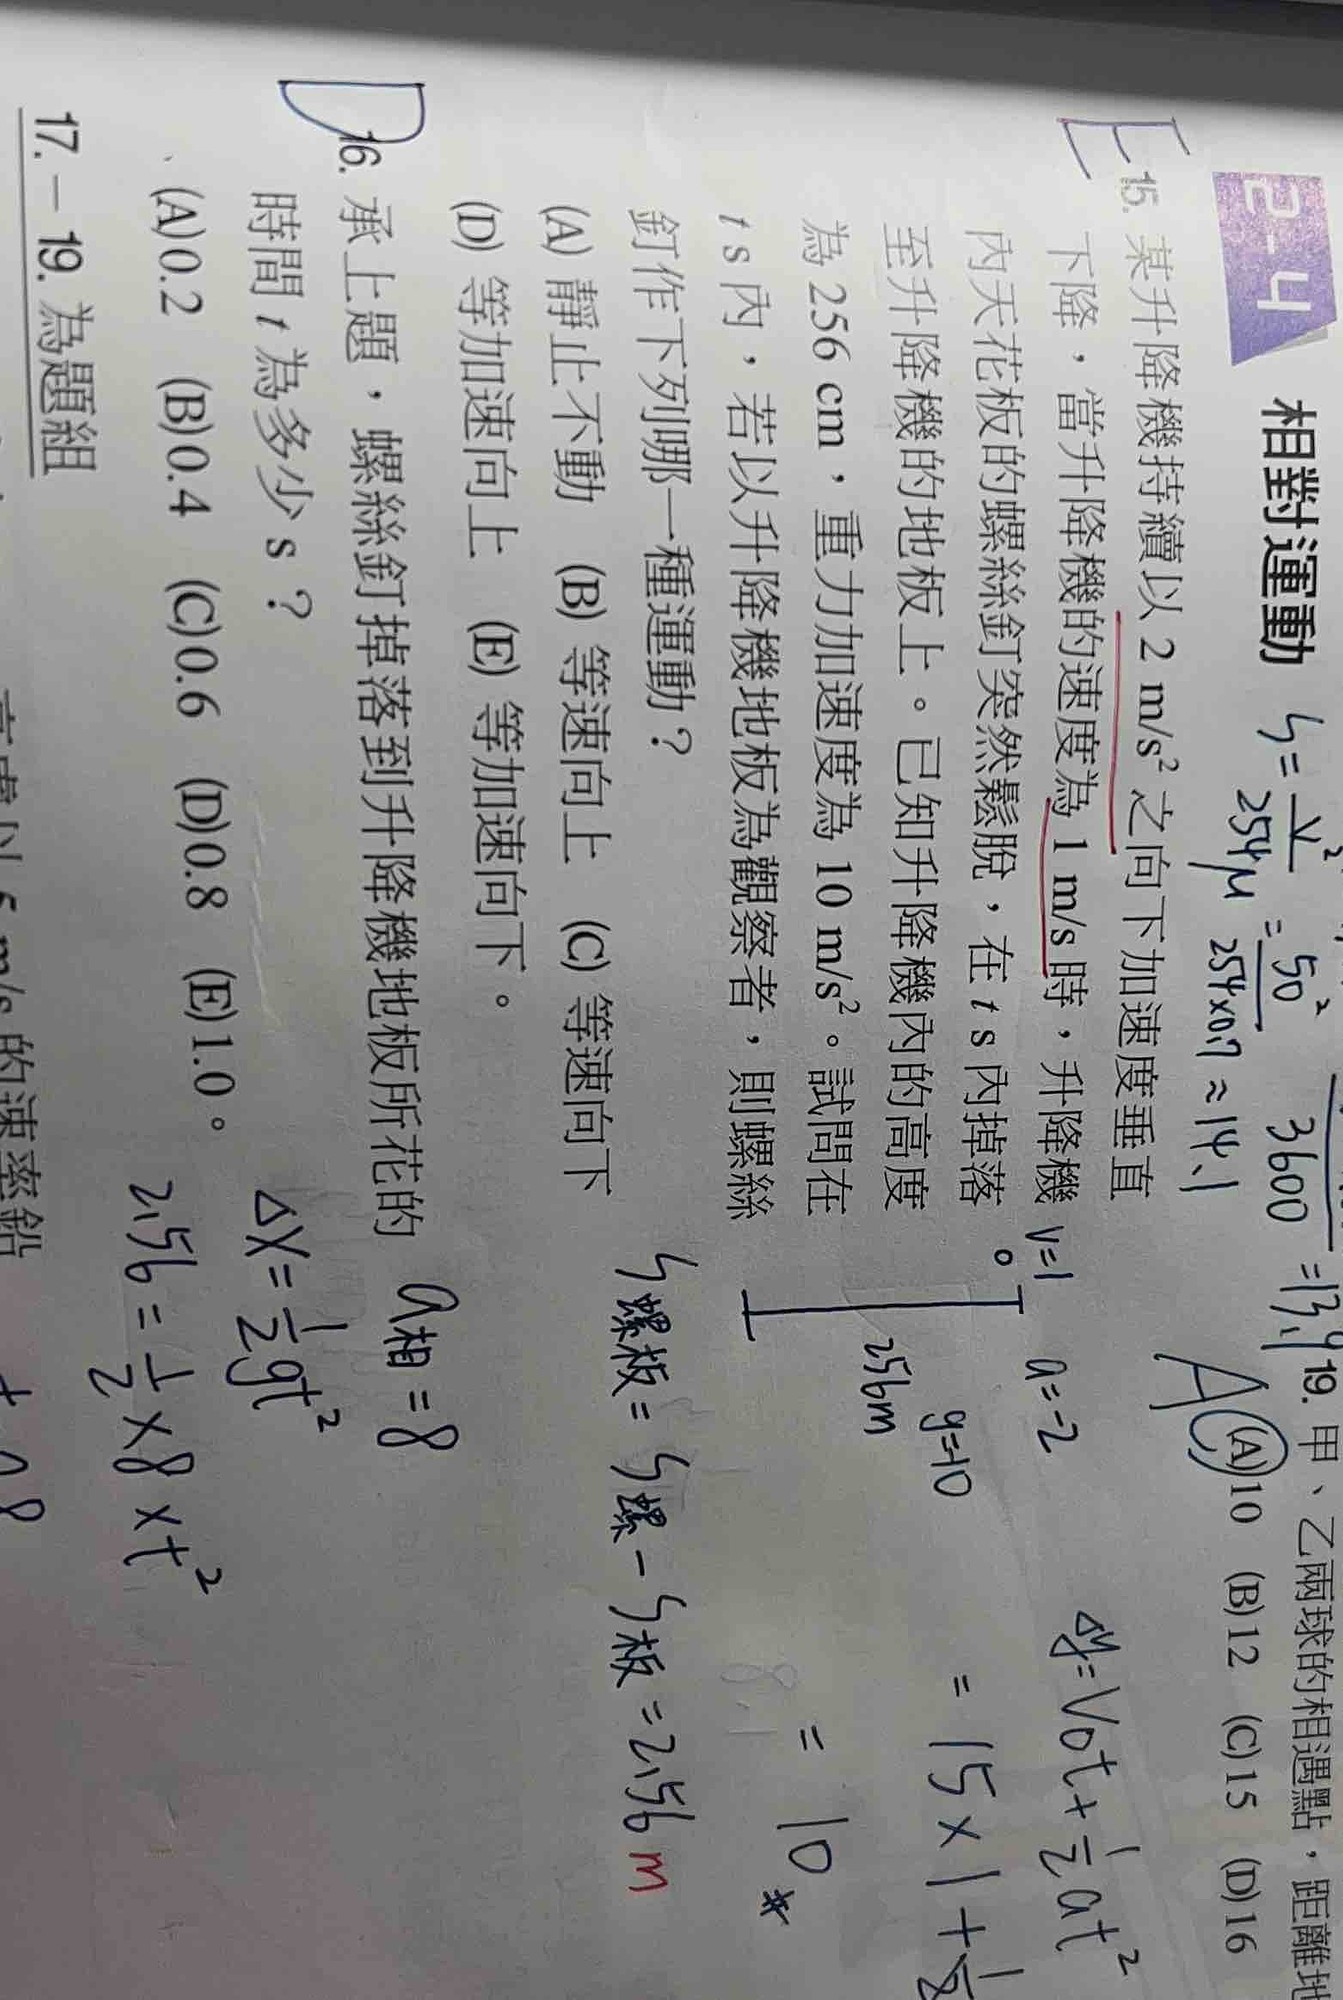 3600 = 13.9
S = V² / 254μ = 50² / 254×0.7 ≈ 14.1
2-4 相對運動
E 15. 某升降機持續以 2 m/s² 之向下加速度垂直
下降，當升降機的速度為 1 m/s 時，升降機
內天花板的螺絲釘突然鬆脫，在 t s 內掉落
至升降機的地板上。已知升降機內的高度
為 256 cm，重力加速度為 10 m/s²。試問在
t s 內，若以升降機地板為觀察者，則螺絲
釘作下列哪一種運動？
(A) 靜止不動 (B) 等速向上 (C) 等速向下
(D) 等加速向上 (E) 等加速向下。
v=1 a=-2
g=10
256m
S螺板 = S螺 - S板 = 2.56 m
D 16. 承上題，螺絲釘掉落到升降機地板所花的
時間 t 為多少 s？
(A)0.2 (B)0.4 (C)0.6 (D)0.8 (E)1.0。
a相 = 8
ΔX = 1/2 gt²
2.56 = 1/2 × 8 × t²
17.－19. 為題組
m/s 的速率鉛
19. 甲、乙兩球的相遇點，距離地
A (A)10 (B)12 (C)15 (D)16
Δy = V₀t + 1/2 at²
= 15 × 1 + 1/2
= 10